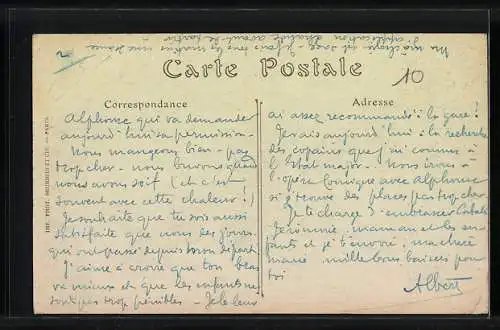 Carte Postale
10
Correspondance
Adresse
Alphonse qui va demander
aujourd'hui sa permission -
Nous mangeons bien - pas
trop cher - nous buvons quand
nous avons soif (et c'est
souvent avec cette chaleur!)
Je souhaite que tu sois aussi
satisfaite que nous des jours
qui ont passé depuis mon départ
J'aime à croire que ton bras
va mieux et que les enfants ne
sont pas trop pénibles - Je le leur
ai assez recommandé à la gare!
J'erais aujourd'hui à la recherche
des copains que j'ai connus à
l'Etat major - Nous irons à
l'opéra Comique avec Alphonse
si j'trouve des places pas trop cher
Je te charge d'embrasser
Jérômine, maman et les en-
fants et je t'envoie, ma chère
mille bons baisers pour
toi
Albert
Ma est sage - Je fais tous les matins une
application avant de partir
IMP. PHOT. - PARIS